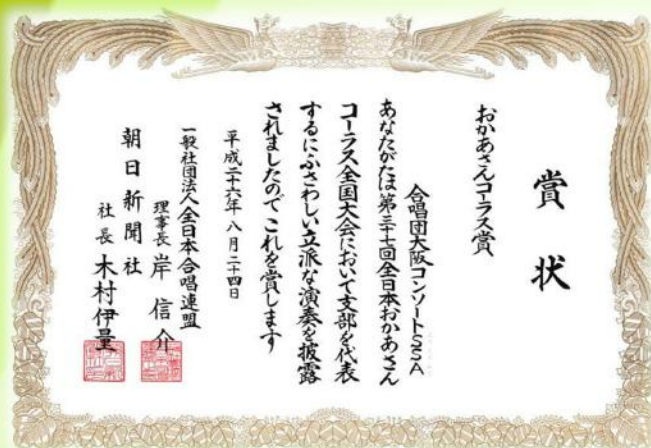 賞状
おかあさんコーラス賞
合唱団大阪コンソートSSA
あなたがたは第三十七回全日本おかあさん
コーラス全国大会において支部を代表
するにふさわしい立派な演奏を披露
されましたのでこれを賞します
平成二十六年八月二十四日
一般社団法人全日本合唱連盟
理事長 岸信介
朝日新聞社
社長 木村伊量